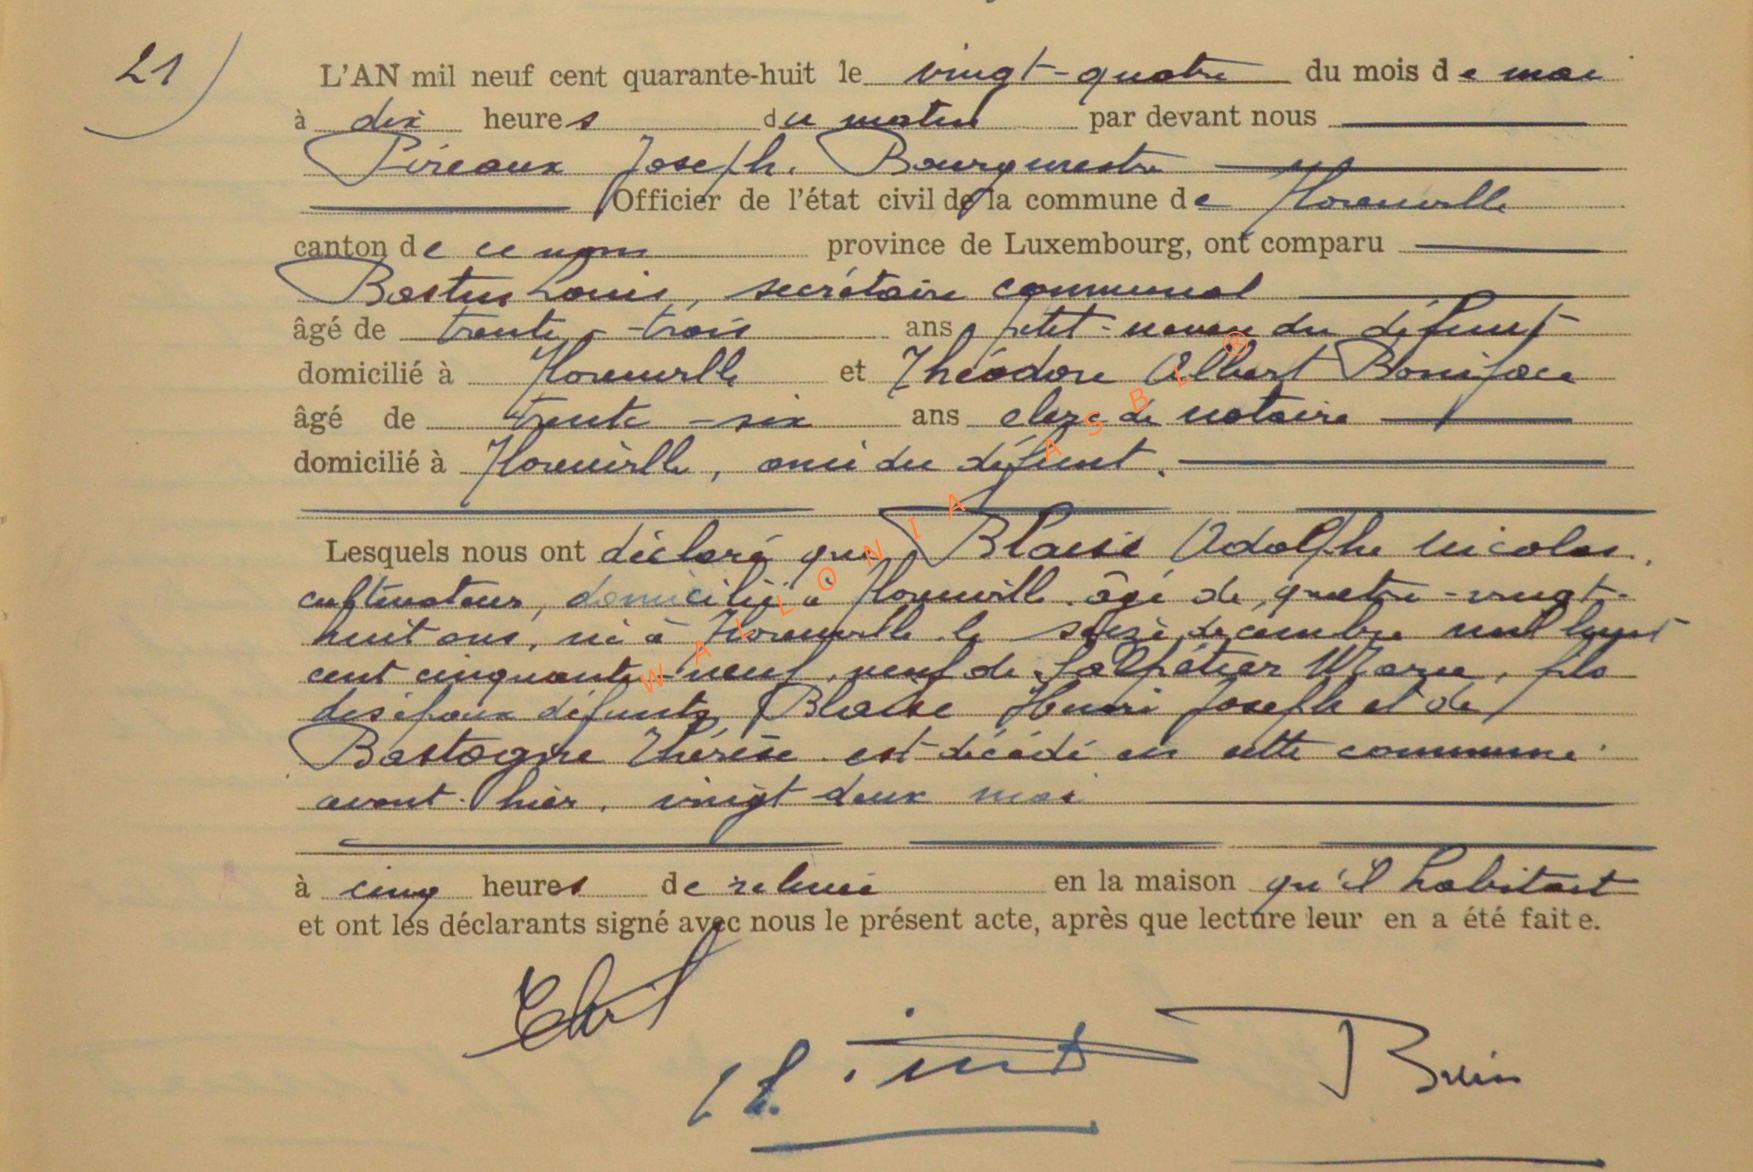 21)
L'AN mil neuf cent quarante-huit le vingt-quatre du mois de mai
à dix heures du matin par devant nous
Pireaux Joseph, Bourgmestre
Officier de l'état civil de la commune de Florenville
canton de ce nom province de Luxembourg, ont comparu
Louis, secrétaire communal
âgé de trente-trois ans, petit-neveu du défunt
domicilié à Florenville et Théodore Albert Boniface
âgé de trente-six ans clerc de notaire
domicilié à Florenville, ami du défunt.
Lesquels nous ont déclaré que Blaise Adolphe Nicolas,
cultivateur, domicilié à Florenville, âgé de quatre-vingt-
huit ans, né à Florenville le seize décembre mil huit
cent cinquante-neuf, veuf de Salpétier Marie, fils
des époux défunts Blaise Henri Joseph et de
Bastogne Thérèse est décédé en cette commune
avant-hier, vingt deux mai
à cinq heures de relevée en la maison qu'il habitait
et ont les déclarants signé avec nous le présent acte, après que lecture leur en a été faite.
WALLONIA ASBL ®